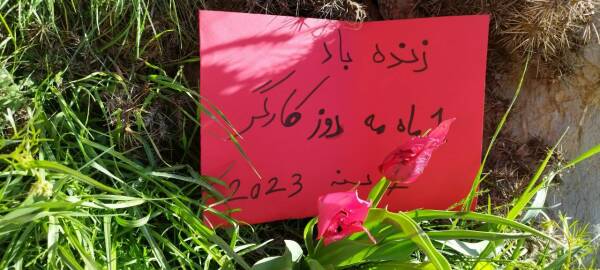 زنده باد
1 ماه مه روز کارگر
2023